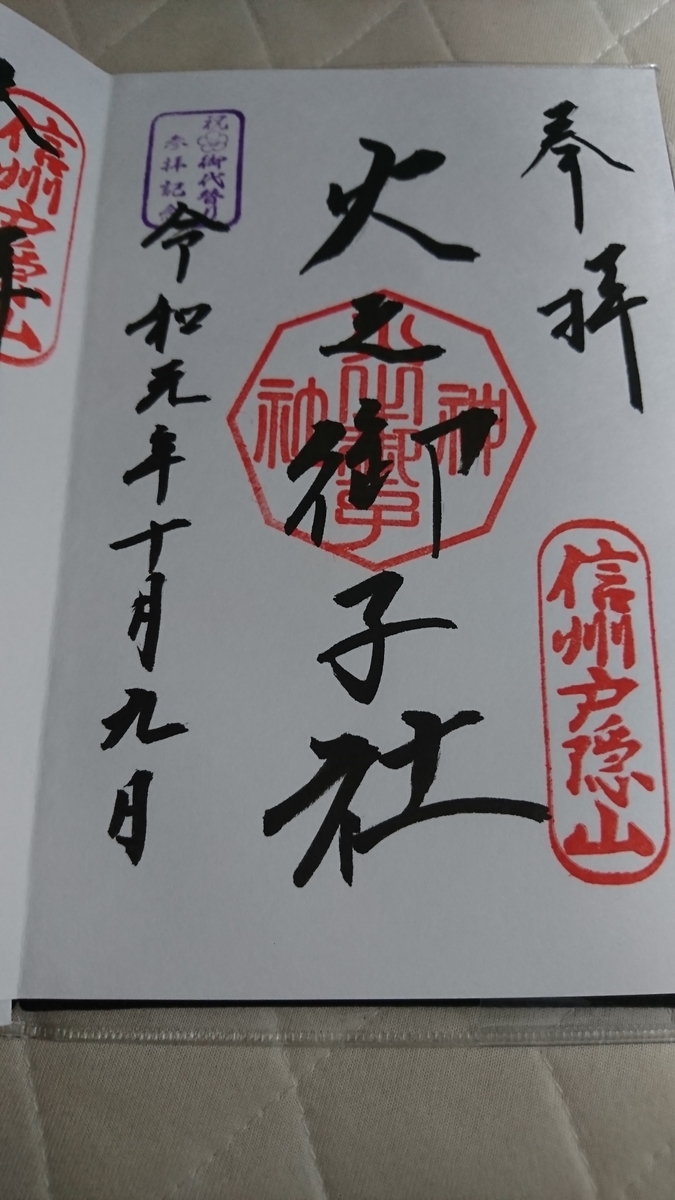 奉拝
信州戸隠山
火之御子社
祝 御代替り
参拝記念
令和元年十月九月
信州戸隠山